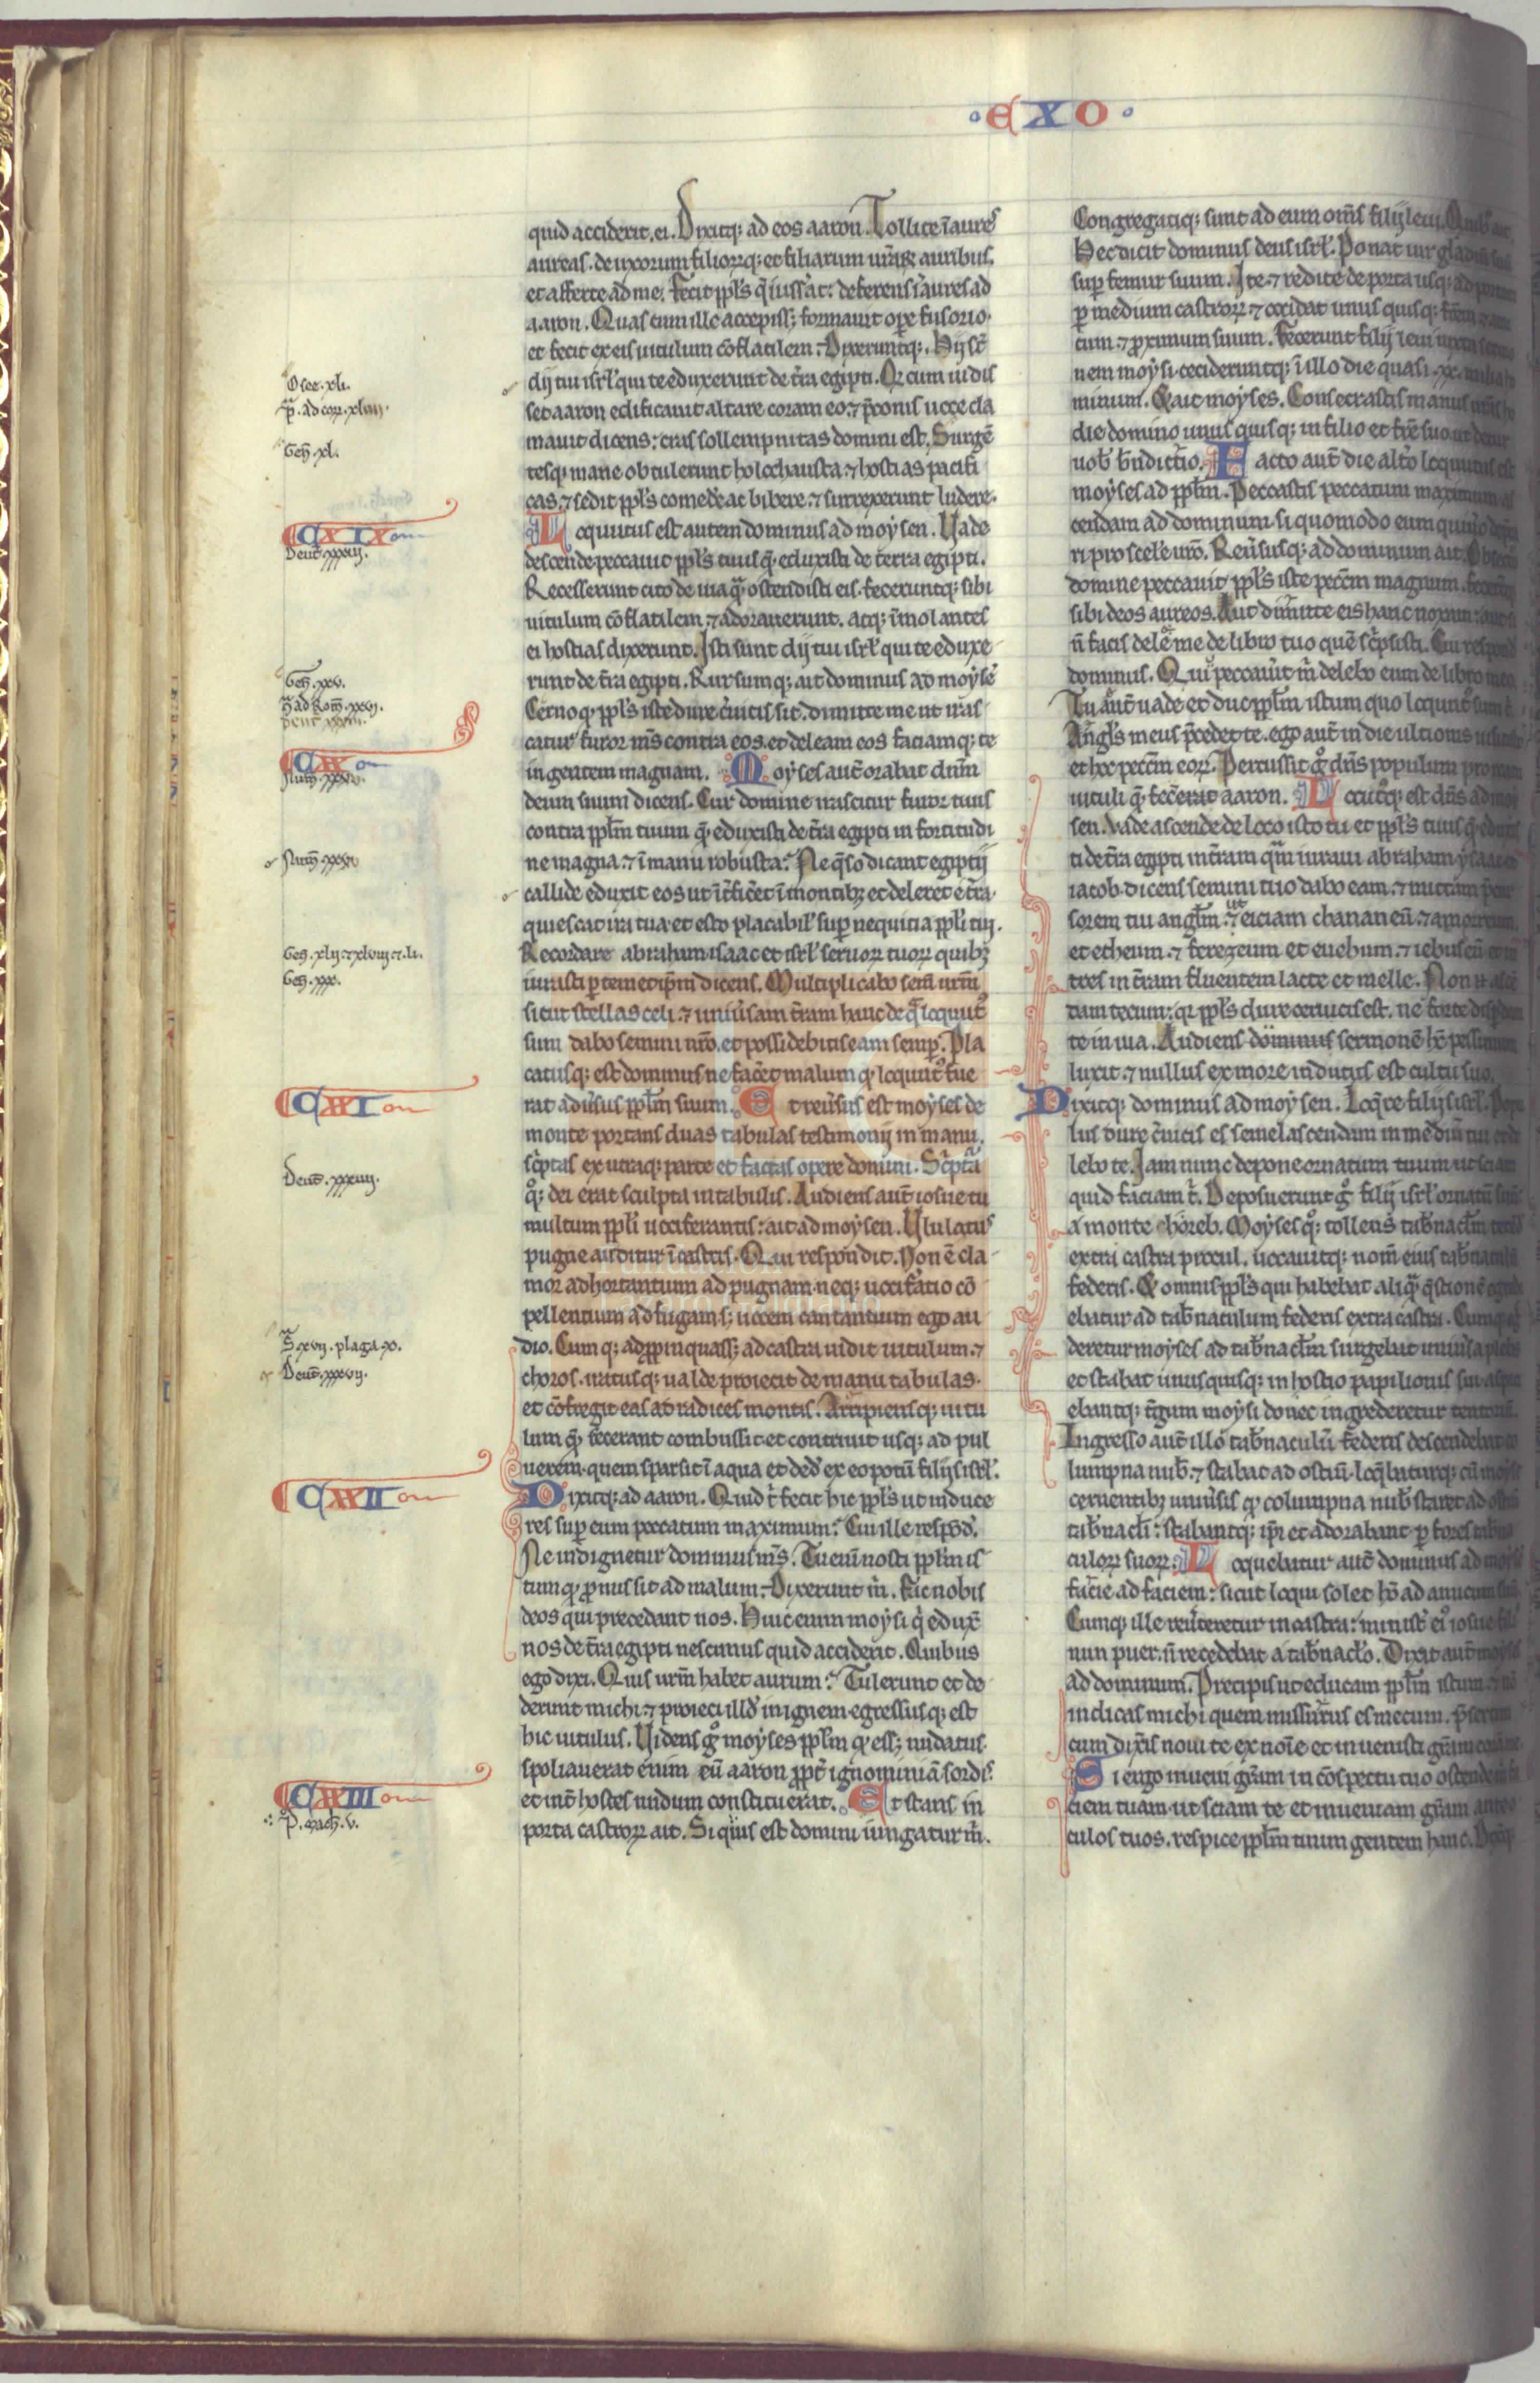 · EXO ·
quid acciderit. ei. Dixitq; ad eos aaron. Tollite īaures
aureas. de uxorum filiorꝝq; et filiarum ur̄arꝝ auribus.
et afferte ad me. fecit ppl̄s q̄ iuss̄at: deferens īaures ad
aaron. Quas cum ille accepiss; formauit oꝑe fusorio.
et fecit ex eis uitulum cōflatilem. Dixeruntq;. Hij st̄
dij tui isrl̄ qui te eduxerunt de t̄ra egipti. Qr cum uidis
set aaron edificauit altare coram eo. ⁊ p̄conis uoce cla
mauit dicens: cras sollempnitas domini est. Surgē
tesq; mane obtulerunt holochausta. ⁊ hostias pacifi
cas. ⁊ sedit ppl̄s comed̄e ac bibere. ⁊ surrexerunt ludere.
Loquutus est autem dominus ad moysen. Uade
descende peccauit ppl̄s tuus q̄ eduxisti de terra egipti.
Recesserunt cito de uia q̄ ostendisti eis. feceruntq; sibi
uitulum cōflatilem. ⁊ adorauerunt. atq; īmolantes
ei hostias dixerunt. Isti sunt dij tui isrl̄ qui te eduxe
runt de t̄ra egipti. Rursumq; ait dominus ad moysē
Cerno q̄ ppl̄s iste dure c̄uicis sit. dimitte me ut iras
catur furor m̄s contra eos. et deleam eos faciamq; te
in gentem magnam. Moyses aut̄ orabat dn̄m
deum suum dicens. Cur domine irascitur furor tuus
contra ppl̄m tuum q̄ eduxisti de t̄ra egipti in fortitudi
ne magna. ⁊ ī manu robusta. Ne q̄so dicant egiptij
callide eduxit eos ut īt̄fic̄et ī montibꝫ et deleret e t̄ra.
quiescat ira tua. et esto placabil̄ suꝑ nequitia ppl̄i tui.
Recordare abraham isaac et isrl̄ seruorꝝ tuorꝝ quibꝫ
iurasti ꝑ temetip̄m dicens. Multiplicabo sem̄ ur̄m
sicut stellas celi. ⁊ uniu̓sam t̄ram hanc de q̄ loquut̓
sum dabo semini ur̄o. et possidebitis eam semꝑ. Pla
catusq; est dominus ne fac̄et malum q̄ loquut̓ fue
rat adu̓sus ppl̄m suum. Et reu̓sus est moyses de
monte portans duas tabulas testimonij in manu.
sc̄ptas ex utraq; parte et factas opere domini. Sc̄pt̄a
q̊q; dei erat sculpta in tabulis. Audiens aut̄ iosue tu
multum ppl̄i uociferantis: ait ad moysen. Ululatus
pugne auditur ī castris. Qui respondit. Non ē cla
mor adhortantium ad pugnam. neq; uocif̄atio cō
pellentium ad fugam s; uocem cantantium ego au
dio. Cumq; adꝓpinquass; ad castra uidit uitulum. ⁊
choros. iratusq; ualde proiecit de manu tabulas.
et cōfregit eas ad radices montis. Arripiensq; uitu
lum q̄ fecerant combussit. et contriuit usq; ad pul
uerem. quem sparsit ī aqua et ded̄ ex eo potū filijs isrl̄.
Dixitq; ad aaron. Quid t̄ fecit hic ppl̄s ut induce
res suꝑ eum peccatum maximum. Cui ille respōd̄.
Ne indignetur dominus m̄s. Tu enī nosti ppl̄m is
tum q̄ ꝓnus sit ad malum. Dixerunt m̄. Fac nobis
deos qui precedant nos. Huic enim moysi q̄ edux̄
nos de t̄ra egipti nescimus quid acciderit. Quibus
ego dixi. Quis ur̄m habet aurum. Tulerunt et de
derunt michi. ⁊ proieci illd̄ in ignem. egressusq; est
hic uitulus. Uidens g̊ moyses ppl̄m q̄ ess; nudatus.
spoliauerat enim eū aaron ꝓpt̄ ignominiā sordis.
et int̄ hostes nudum constituerat. Et stans in
porta castrorꝝ ait. Si quis est domini iungatur m̄.
Congregatiq; sunt ad eum om̄s filij leui. Quibꝫ ait.
Hec dicit dominus deus isrl̄. Ponat uir gladiū
suꝑ femur suum. Ite. ⁊ redite de porta usq; ad portam
ꝑ medium castrorꝝ. ⁊ occidat unus quisq; fr̄em
cum. ⁊ ꝓximum suum. Fecerunt filij leui iuxta sermo
nem moysi. cecideruntq; ī illo die quasi .xx. milia
minum. Et ait moyses. Consecrastis manus ur̄as ho
die domino unus quisq; in filio et fr̄e suo. ut detur
uob̄ bn̄dictio. Facto aut̄ die alt̄o loquutus est
moyses ad ppl̄m. Peccastis peccatum maximum. as
cendam ad dominum si quomodo eum quiu̓o dep̄ca
ri pro scel̄e ur̄o. Reu̓susq; ad dominum ait. Obsecro
domine peccauit ppl̄s iste pecc̄m magnum. fecerūtq;
sibi deos aureos. Aut dimitte eis hanc noxam: aut si
n̄ facis dele me de libro tuo quē sc̄psisti. Cui respond̄
dominus. Qui peccau̓it m̄ delebo eum de libro meo.
Tu aut̄ uade et duc ppl̄m istum quo loqunt̓ sum
Angl̄s meus p̄cedet te. ego aut̄ in die ultionis
et hoc pecc̄m eorꝝ. Percussit g̊ dn̄s populum pro reatu
uituli q̄ fec̄erat aaron. Locut̓q; est dn̄s ad moy
sen. Vade ascende de loco isto tu et ppl̄s tuus q̄ eduxis
ti de t̄ra egipti in t̄ram q̄m iuraui abraham ysaac
iacob. dicens semini tuo dabo eam. ⁊ mittam p̄cur
sorem tui angl̄m. ut eiciam chananeū. ⁊ amorreum.
et etheum. ⁊ ferezeum et eueum. ⁊ iebuseū
tres in t̄ram fluentem lacte et melle. Non
dam tecum: qr ppl̄s dure ceruicis est. ne forte disꝑdam
te in uia. Audiens dominus sermonē hc̄ pessimum
luxit. ⁊ nullus ex more indutus est cultu suo.
Dixitq; dominus ad moysen. Loq̄re filijs isrl̄. Popu
lus dure c̄uicis es semel ascendam in mediū tui
lebo te. Iam nunc depone ornatum tuum ut sciam
quid faciam t̄. Deposuerunt g̊ filij isrl̄ ornatū suū
a monte horeb. Moyses q̊q; tollens tab̄nacl̄m
extra castra procul. uocauitq; nom̄ eius tab̄naculū
federis. Et omnis ppl̄s qui habebat aliq̄ q̄stionē
ebatur ad tab̄naculum federis extra castra. Cumq;
deretur moyses ad tab̄nacl̄m surgebat uniu̓sa plebs
et stabat unusquisq; in hostio papilionis sui.
ebantq; t̄gum moysi donec ingrederetur tentoriū.
Ingresso aut̄ illo tab̄naculū federis descendebat co
lumpna nub̄. ⁊ stabat ad ostiū. loq̄baturq; cū moyse
cernentibꝫ uniu̓sis q̄ columpna nub̄ staret ad ostiū
tab̄nacl̄i: stabantq; ip̄i et adorabant ꝑ fores tab̄na
culorꝝ suorꝝ. Loquebatur aut̄ dominus ad moysē
facie ad faciem: sicut loqui solet hō ad amicum suū
Cumq; ille reu̓teretur in castra: minist̄ ei̓ iosue fili̓
nun puer. n̄ recedebat a tab̄nacl̄o. Dixit aut̄ moyses
ad dominum. Precipis ut educam ppl̄m istum. ⁊ nō
indicas michi quem missurus es mecum. p̄sertim
cum dix̄is noui te ex noīe et inuenisti gr̄am coram
Si ergo inueni gr̄am in cōspectu tuo ostende
ciem tuam. ut sciam te et inueniam gr̄am ante o
culos tuos. respice ppl̄m tuum gentem hanc. Dixitq;
Osee. xli.
p̄. ad cor. xlviij.
Gen̄. xl.
CXIX
Deut. xxxij.
Gen̄. xv.
ad Rom̄. xxvj.
CXX
Num̄. xxxv.
Num̄. xxxv
Gen̄. xlij. ⁊ xlviij. ⁊ li.
Gen̄. xxx.
CXXI
Deut̄. xxxiiij.
S. xvij. plaga. x.
Deut̄. xxxvij.
CXXII
CXXIII
p̄. mach. v.